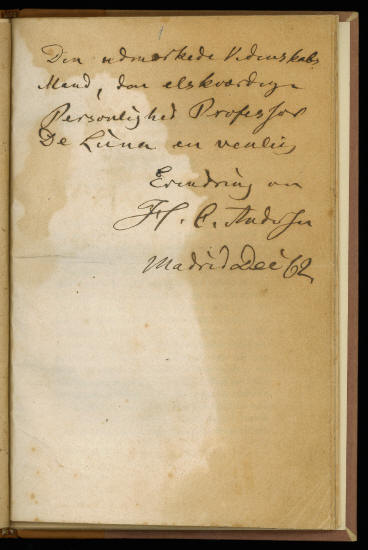 Den udmærkede Videnskabs
Mand, den elskværdige
Personlighed Professor
De Luna en venlig
Erindring om
H. C. Andersen
Madrid Dec 62